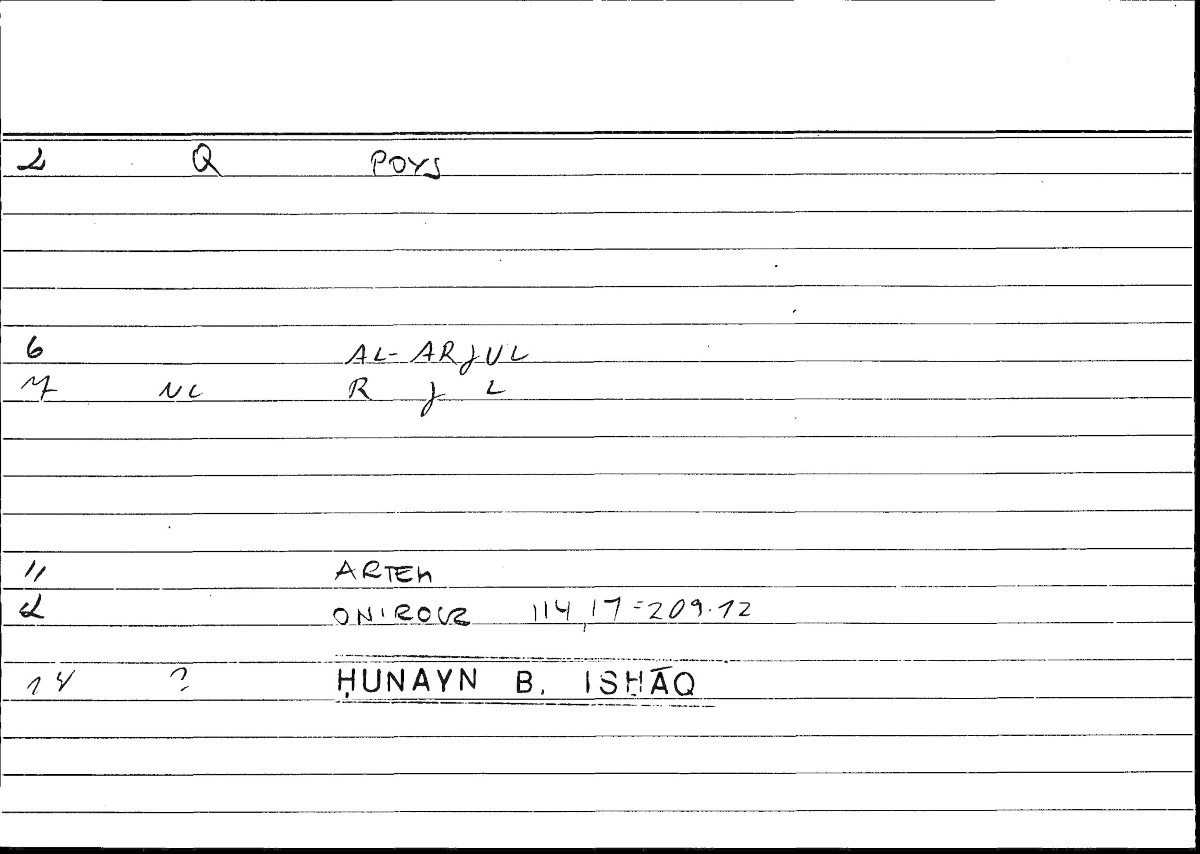 2 Q POYS
6 AL-ARJUL
7 NL R J L
11 ARTEM
2 ONIROCR 114,17=209.12
14 ? ḤUNAYN B. ISḤĀQ